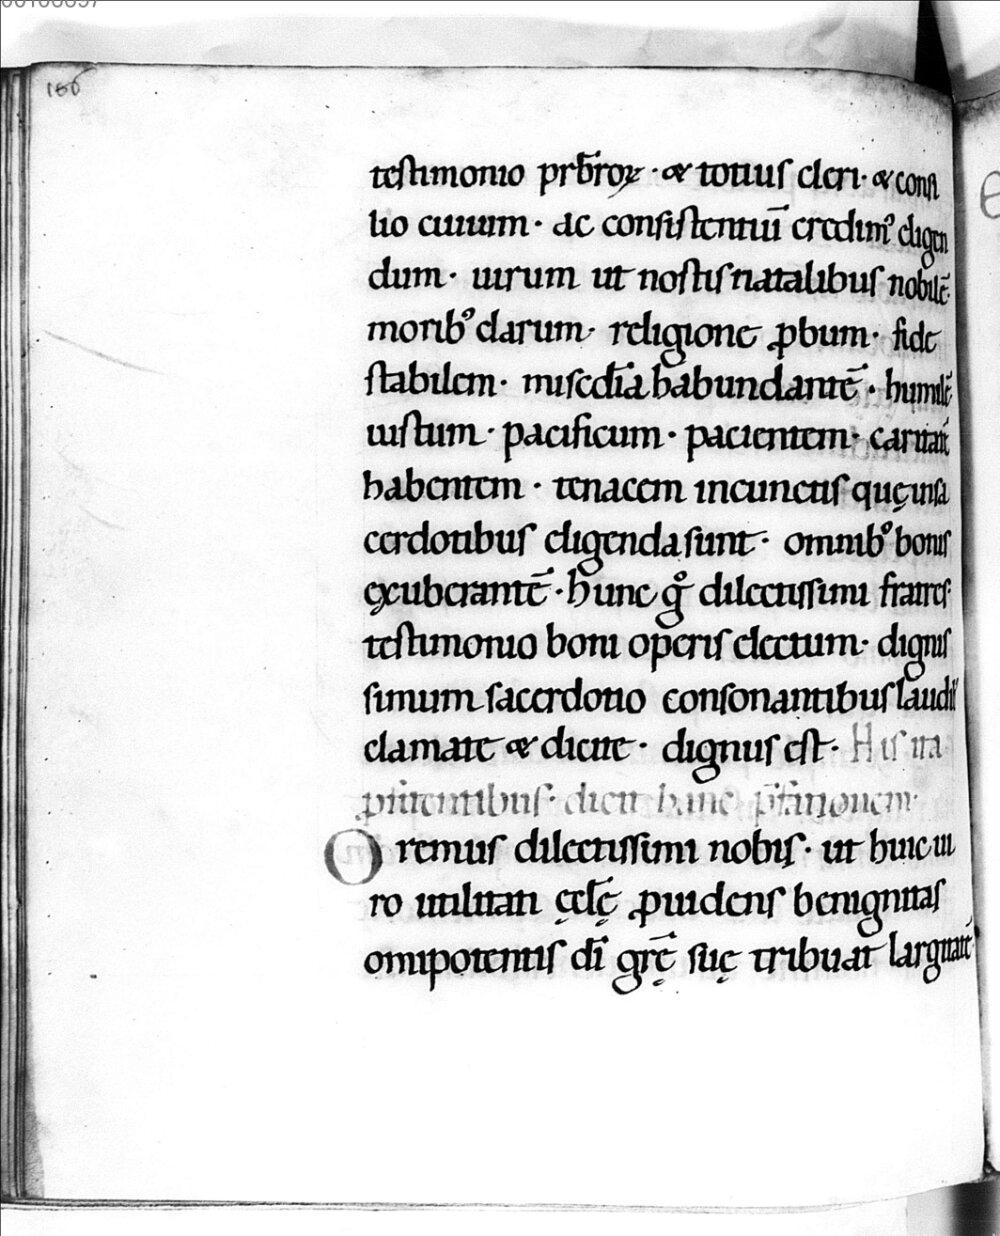 166
testimonio prb̄roꝝ · & totius cleri · & consi
lio ciuium · ac consistentiū credimꝰ eligen
dum · uirum ut nostis natalibus nobilē ·
moribꝰ clarum · religione ꝓbum · fide
stabilem · misc̄dia habundantē · humilē
iustum · pacificum · pacientem · caritatē
habentem · tenacem incunctis quę insa
cerdotibus eligenda sunt · omnibꝰ bonis
exuberantē · hunc gͦ dilectissimi fratres ·
testimonio boni operis electum · dignis
simum sacerdotio consonantibus laudibꝰ
clamate & dicite · dignus est · His ita
dicit hanc
Oremus dilectissimi nobis · ut huic ui
ro utilitati ęcl̄ę ꝓuidens benignitas
omipotentis dī gr̄ę suę tribuat largitatē